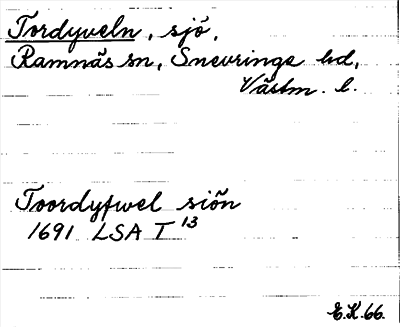 Tordyveln, sjö,
Ramnäs sn, Snevringe hd,
Västm. l.
Toordyfwel siön
1691 LSA T 13
E.K. 66.